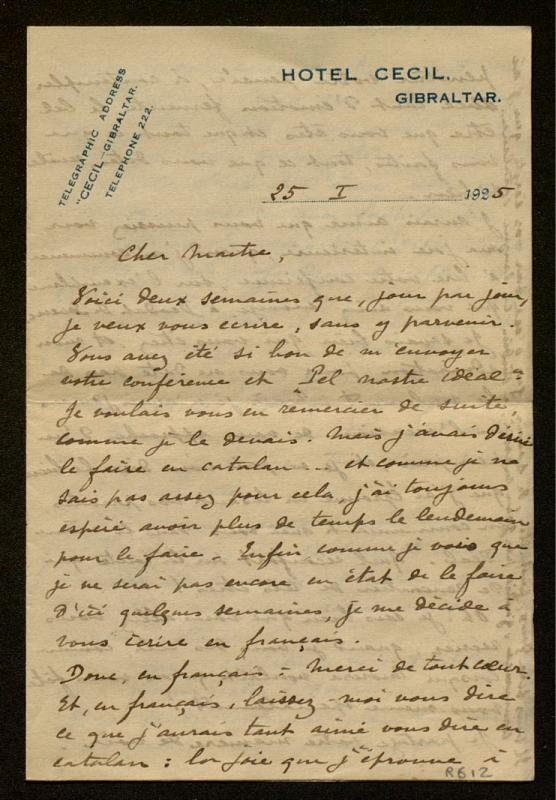 HOTEL CECIL.
GIBRALTAR.
TELEGRAPHIC ADDRESS
"CECIL-GIBRALTAR.
TELEPHONE 222.
25 I 1925
Cher Maitre,
Voici deux semaines que, jour par jour,
je veux vous écrire, sans y parvenir.
Vous avez été si bon de m'envoyer
votre conférence et "Pel nostre idéal".
Je voulais vous en remercier de suite,
comme je le devais. Mais j'avais désiré
le faire en catalan... et comme je ne
sais pas assez pour cela, j'ai toujours
espéré avoir plus de temps le lendemain
pour le faire. Enfin comme je vois que
je ne serai pas encore en état de le faire
d'ici quelques semaines, je me décide à
vous écrire en français.
Donc, en français: Merci de tout cœur.
Et, en français, laissez-moi vous dire
ce que j'aurais tant aimé vous dire en
catalan: la joie que j'éprouve à
R612